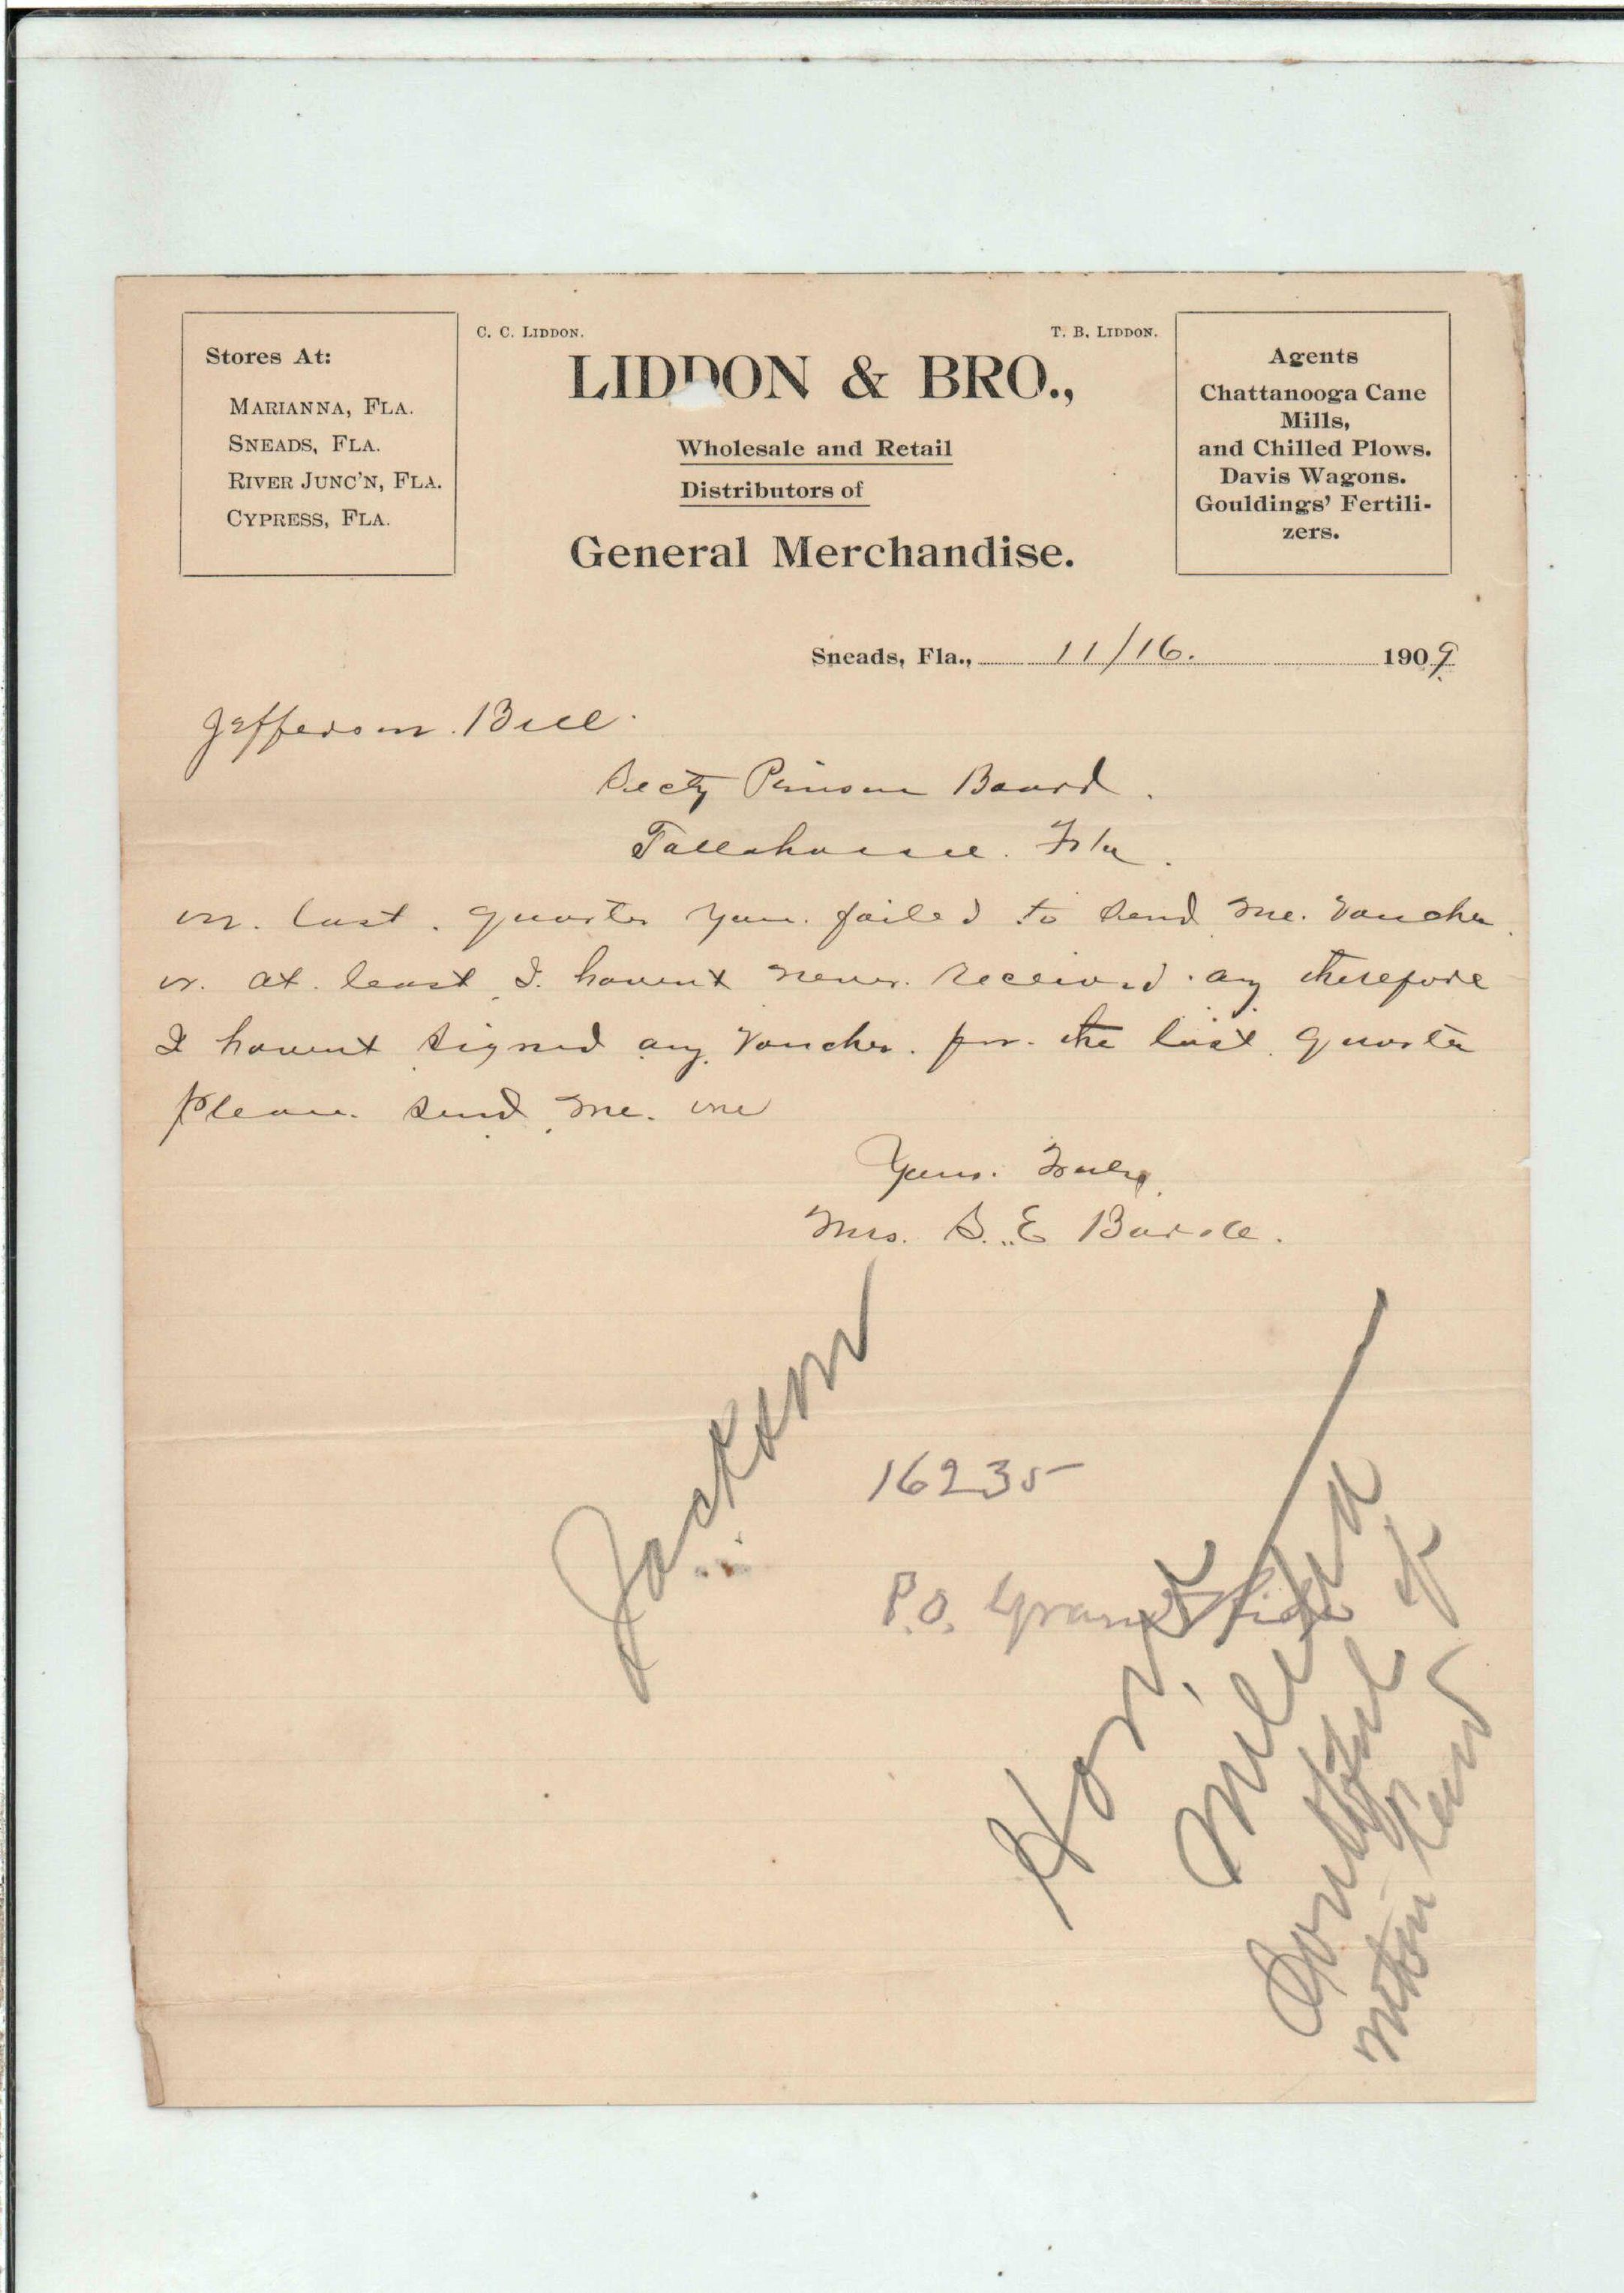 Stores At:
MARIANNA, FLA.
SNEADS, FLA.
RIVER JUNC'N, FLA.
CYPRESS, FLA.
C. C. LIDDON. T. B. LIDDON.
LIDDON & BRO.,
Wholesale and Retail
Distributors of
General Merchandise.
Agents
Chattanooga Cane
Mills,
and Chilled Plows.
Davis Wagons.
Gouldings' Fertili-
zers.
Sneads, Fla., 11/16. 1909
Jefferson. Bell.
Secty Pension Board.
Tallahassee. Fla.
on. last. quarter you. failed to send me. Voucher
or. at. least I. havent never. received. any therefore
I havent signed any Voucher. for. the last quarter
Please. send me. one
Yours. Truly
Mrs. S. E
Jackson
16235
P.O. Grand Ridge
Hon.